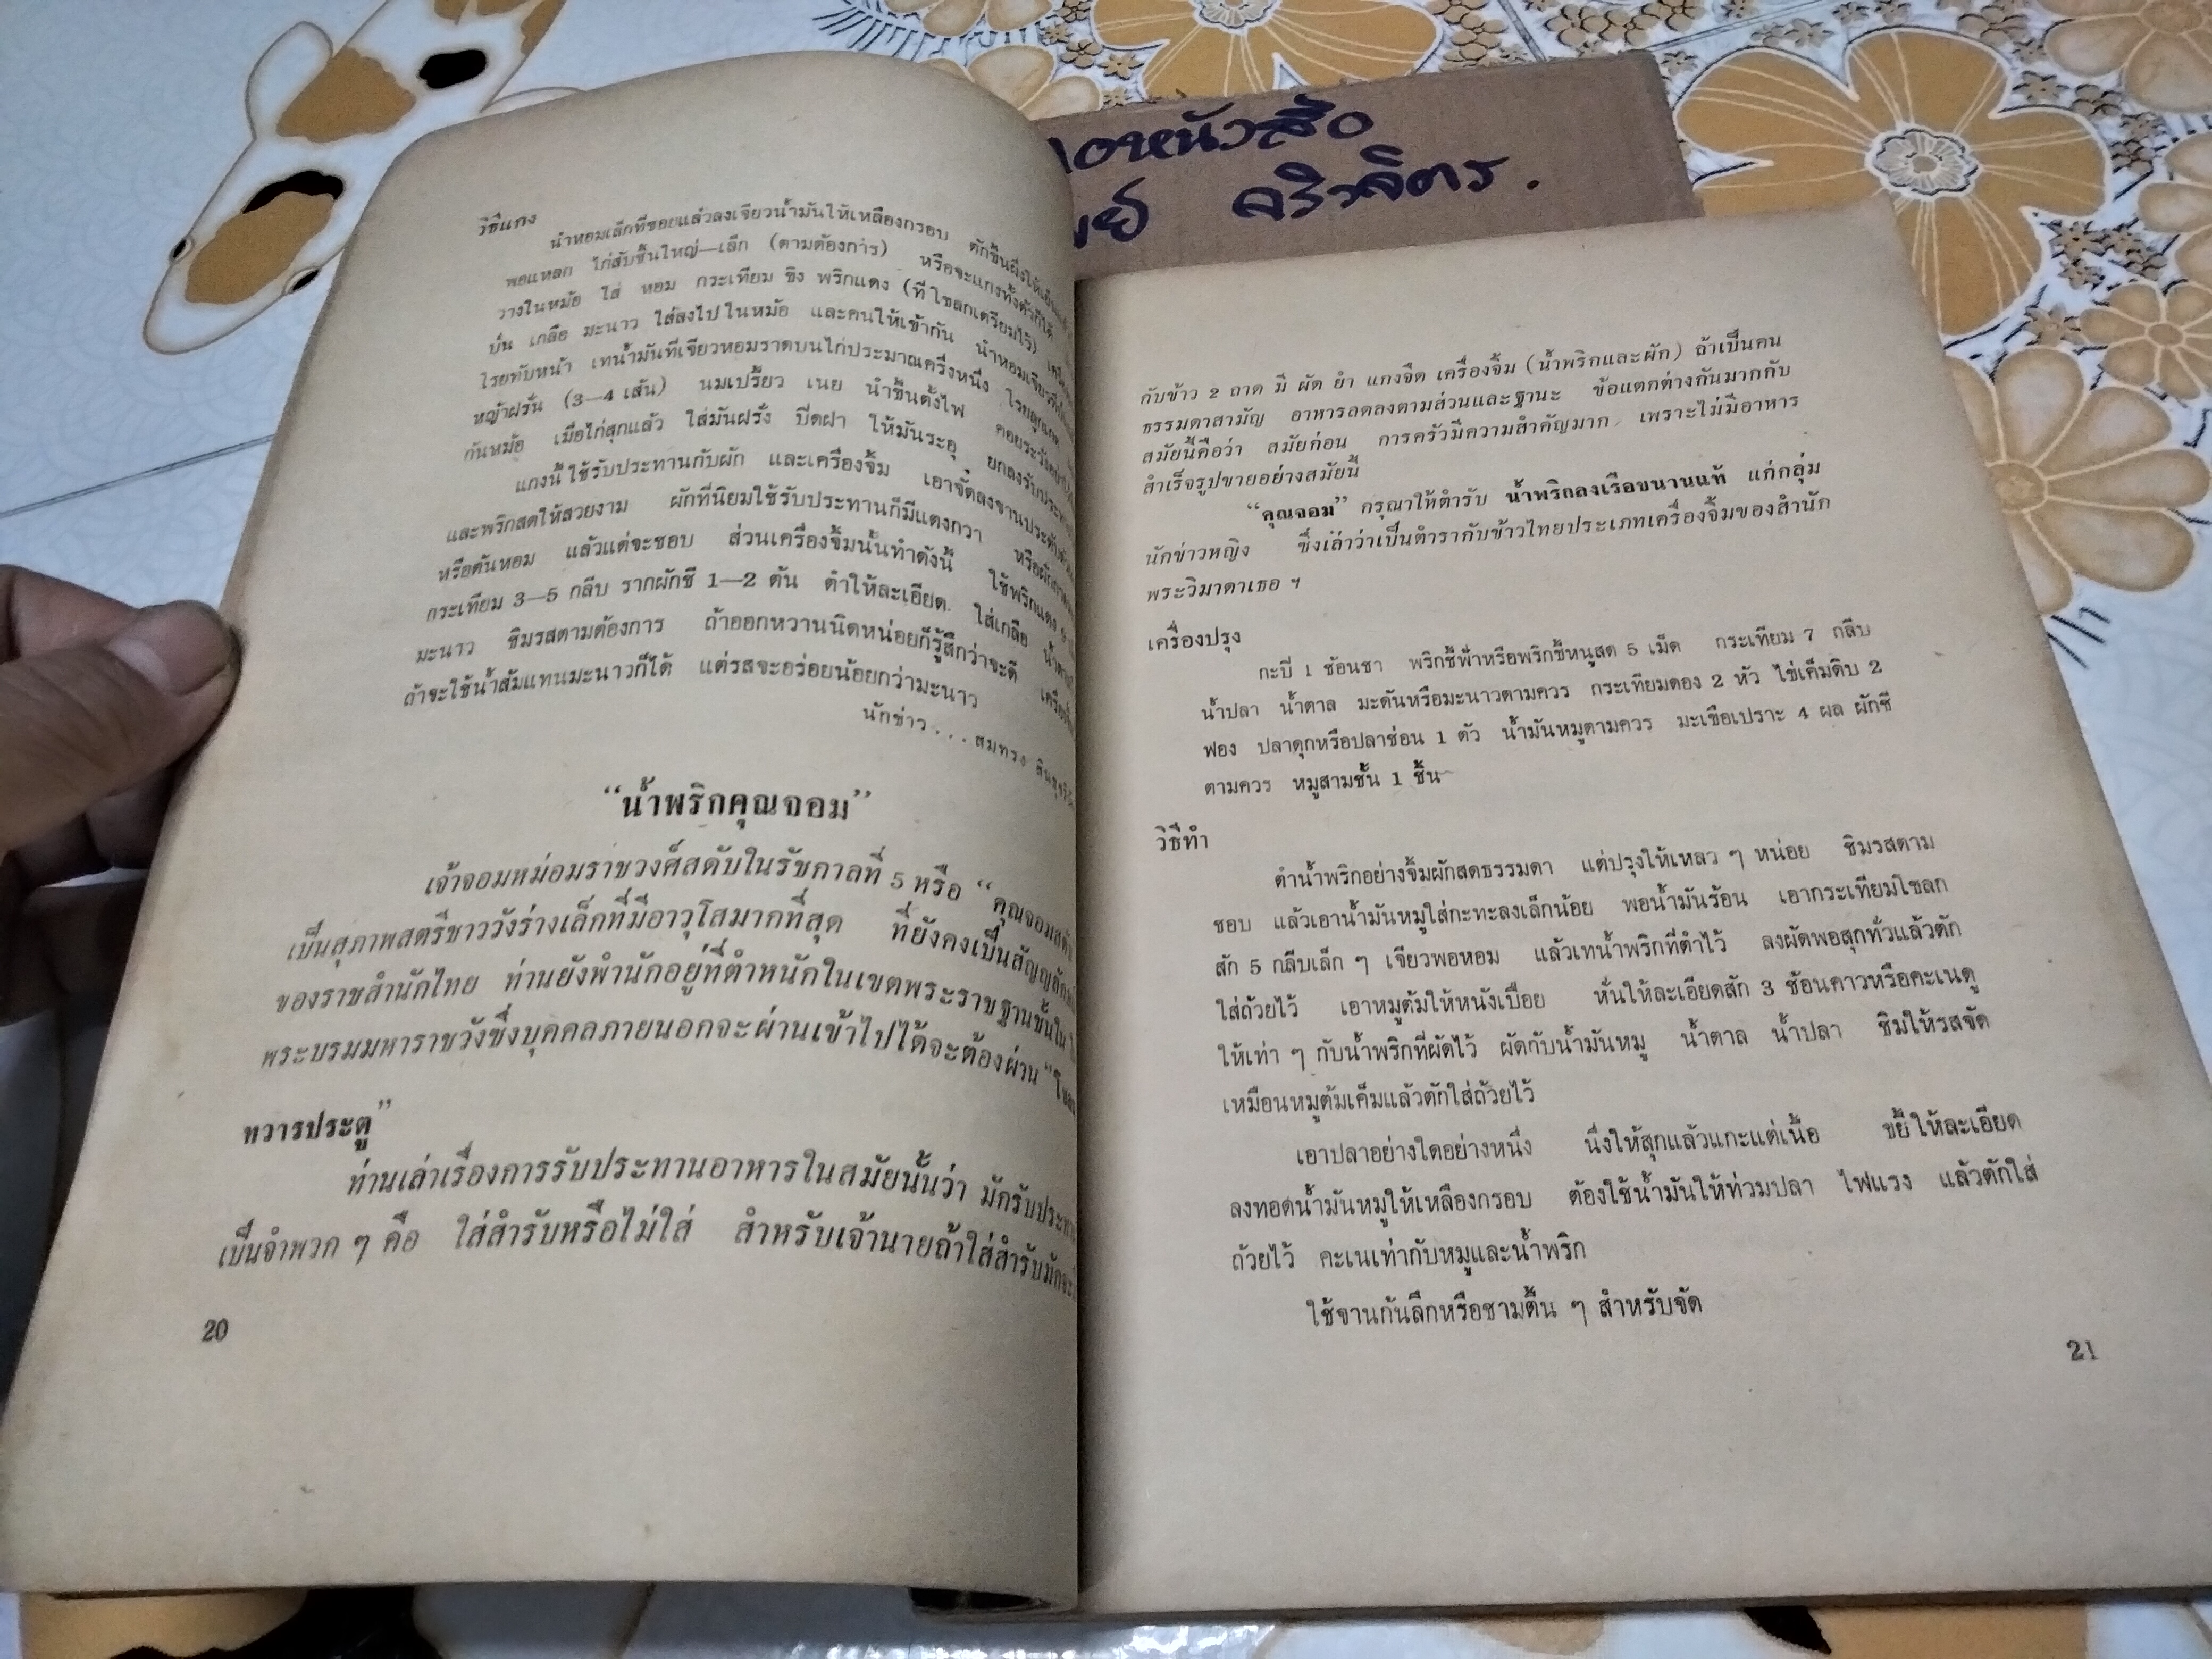 วิธีแกง
นำหอมเล็กที่ซอยแล้วลงเจียวน้ำมันให้เหลืองกรอบ ตักขึ้นผึ่งให้เย็น
พอแหลก ไก่สับชิ้นใหญ่—เล็ก (ตามต้องการ) หรือจะแกงทั้งตัวก็ได้
วางในหม้อ ใส่ หอม กระเทียม ขิง พริกแดง (ที่โขลกเตรียมไว้)
ป่น เกลือ มะนาว ใส่ลงไปในหม้อ และคนให้เข้ากัน นำหอมเจียว
โรยทับหน้า เทน้ำมันที่เจียวหอมราดบนไก่ประมาณครึ่งหนึ่ง โรยลูกเกด
หญ้าฝรั่น (3—4 เส้น) นมเปรี้ยว เนย นำขึ้นตั้งไฟ คอยระวังอย่า
ก้นหม้อ เมื่อไก่สุกแล้ว ใส่มันฝรั่ง ปิดฝา ให้มันระอุ ยกลงรับประทาน
แกงนี้ใช้รับประทานกับผัก และเครื่องจิ้ม เอาจัดลงจานประดับด้วย
และพริกสดให้สวยงาม ผักที่นิยมใช้รับประทานก็มีแตงกวา หรือผักกาด
หรือต้นหอม แล้วแต่จะชอบ ส่วนเครื่องจิ้มนั้นทำดังนี้ ใช้พริกแดง
กระเทียม 3—5 กลีบ รากผักชี 1—2 ต้น ตำให้ละเอียด ใส่เกลือ น้ำตาล
มะนาว ชิมรสตามต้องการ ถ้าออกหวานนิดหน่อยก็รู้สึกว่าจะดี เครื่องจิ้ม
ถ้าจะใช้น้ำส้มแทนมะนาวก็ได้ แต่รสจะอร่อยน้อยกว่ามะนาว
นักข่าว . . . สมทรง
“น้ำพริกคุณจอม”
เจ้าจอมหม่อมราชวงศ์สดับในรัชกาลที่ 5 หรือ “คุณจอมสดับ
เป็นสุภาพสตรีชาววังร่างเล็กที่มีอาวุโสมากที่สุด ที่ยังคงเป็นสัญญลักษณ์
ของราชสำนักไทย ท่านยังพำนักอยู่ที่ตำหนักในเขตพระราชฐานชั้นใน
พระบรมมหาราชวังซึ่งบุคคลภายนอกจะผ่านเข้าไปได้จะต้องผ่าน “โขลน
ทวารประตู”
ท่านเล่าเรื่องการรับประทานอาหารในสมัยนั้นว่า มักรับประทาน
เป็นจำพวก ๆ คือ ใส่สำรับหรือไม่ใส่ สำหรับเจ้านายถ้าใส่สำรับมักจะ
20
กอหนังสือ
ศรีวิจิตร .
กับข้าว 2 ถาด มี ผัด ยำ แกงจืด เครื่องจิ้ม (น้ำพริกและผัก) ถ้าเป็นคน
ธรรมดาสามัญ อาหารลดลงตามส่วนและฐานะ ข้อแตกต่างกันมากกับ
สมัยนี้คือว่า สมัยก่อน การครัวมีความสำคัญมาก เพราะไม่มีอาหาร
สำเร็จรูปขายอย่างสมัยนี้
“คุณจอม” กรุณาให้ตำรับ น้ำพริกลงเรือขนานแท้ แก่กลุ่ม
นักข่าวหญิง ซึ่งเล่าว่าเป็นตำรากับข้าวไทยประเภทเครื่องจิ้มของสำนัก
พระวิมาดาเธอ ฯ
เครื่องปรุง
กะปิ 1 ช้อนชา พริกชี้ฟ้าหรือพริกขี้หนูสด 5 เม็ด กระเทียม 7 กลีบ
น้ำปลา น้ำตาล มะดันหรือมะนาวตามควร กระเทียมดอง 2 หัว ไข่เค็มดิบ 2
ฟอง ปลาดุกหรือปลาช่อน 1 ตัว น้ำมันหมูตามควร มะเขือเปราะ 4 ผล ผักชี
ตามควร หมูสามชั้น 1 ชิ้น
วิธีทำ
ตำน้ำพริกอย่างจิ้มผักสดธรรมดา แต่ปรุงให้เหลว ๆ หน่อย ชิมรสตาม
ชอบ แล้วเอาน้ำมันหมูใส่กะทะลงเล็กน้อย พอน้ำมันร้อน เอากระเทียมโขลก
สัก 5 กลีบเล็ก ๆ เจียวพอหอม แล้วเทน้ำพริกที่ตำไว้ ลงผัดพอสุกทั่วแล้วตัก
ใส่ถ้วยไว้ เอาหมูต้มให้หนังเปื่อย หั่นให้ละเอียดสัก 3 ช้อนคาวหรือคะเนดู
ให้เท่า ๆ กับน้ำพริกที่ผัดไว้ ผัดกับน้ำมันหมู น้ำตาล น้ำปลา ชิมให้รสจัด
เหมือนหมูต้มเค็มแล้วตักใส่ถ้วยไว้
เอาปลาอย่างใดอย่างหนึ่ง นึ่งให้สุกแล้วแกะแต่เนื้อ ขยี้ให้ละเอียด
ลงทอดน้ำมันหมูให้เหลืองกรอบ ต้องใช้น้ำมันให้ท่วมปลา ไฟแรง แล้วตักใส่
ถ้วยไว้ คะเนเท่ากับหมูและน้ำพริก
ใช้จานก้นลึกหรือชามตื้น ๆ สำหรับจัด
21